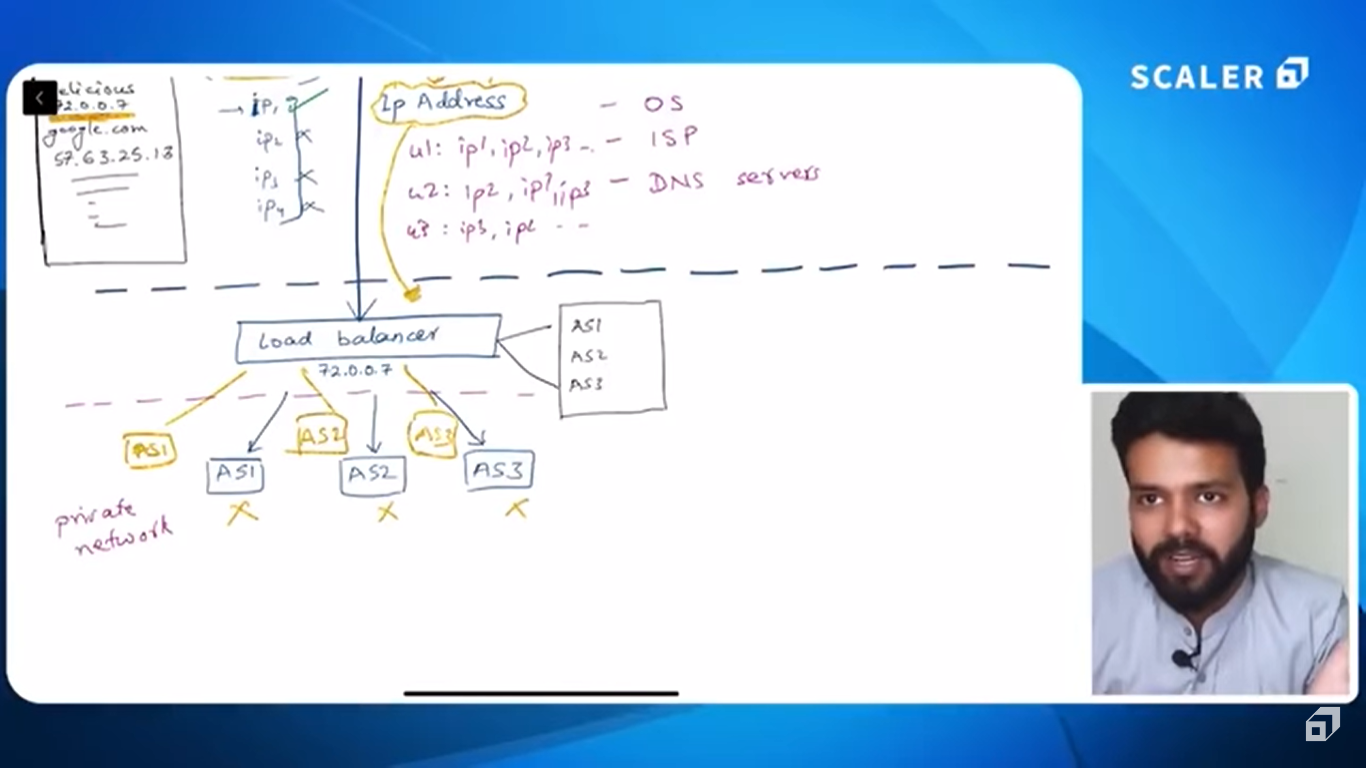 SCALER
elicious
72.0.0.7
google.com
57.63.25.13
→ ip1
ip2 x
ip3 x
ip4 x
Ip Address
- OS
u1: ip1, ip2, ip3 -- - ISP
u2: ip2, ip1, ip3 - DNS servers
u3: ip3, ip2 - -
Load balancer
72.0.0.7
AS1
AS2
AS3
AS1 AS2 AS3
AS1 AS2 AS3
x x x
private
network